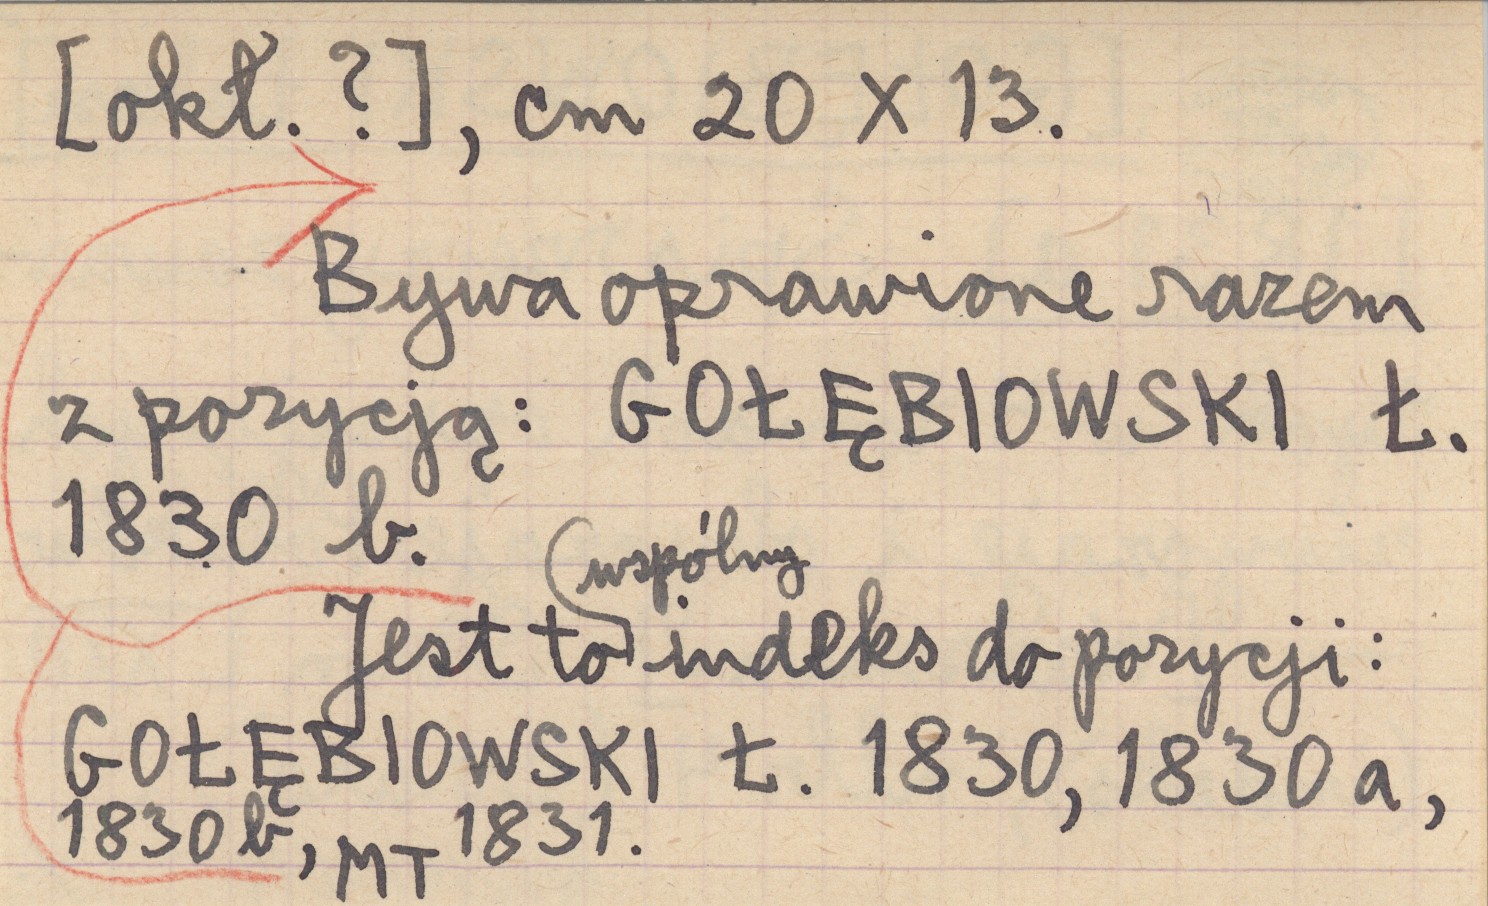 [okł. ?], cm 20 X 13.
Bywa oprawione razem
z pozycją: GOŁĘBIOWSKI Ł.
1830 b.
wspólny
Jest to indeks do pozycji:
GOŁĘBIOWSKI Ł. 1830, 1830 a,
1830 b, MT 1831.